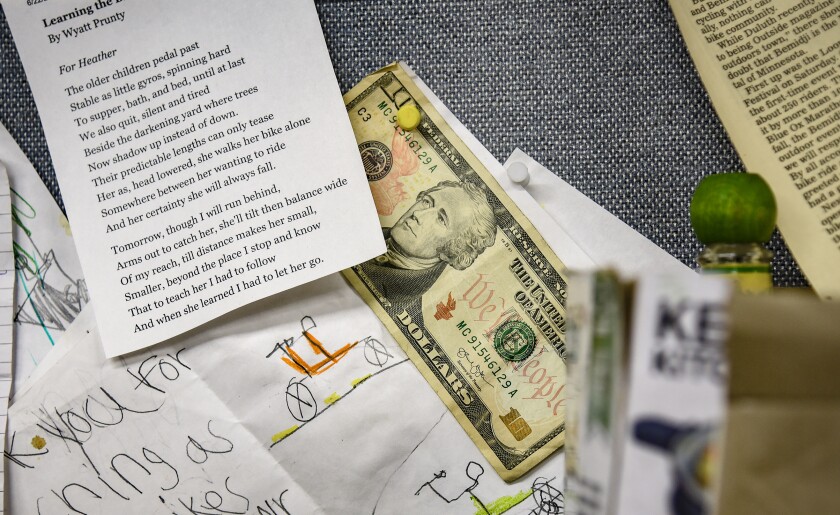 Learning the
By Wyatt Prunty
For Heather
The older children pedal past
Stable as little gyros, spinning hard
To supper, bath, and bed, until at last
We also quit, silent and tired
Beside the darkening yard where trees
Now shadow up instead of down.
Their predictable lengths can only tease
Her as, head lowered, she walks her bike alone
Somewhere between her wanting to ride
And her certainty she will always fall.
Tomorrow, though I will run behind,
Arms out to catch her, she'll tilt then balance wide
Of my reach, till distance makes her small,
Smaller, beyond the place I stop and know
That to teach her I had to follow
And when she learned I had to let her go.
C3
MC91546129A
THE UNITED
OF AMERICA
We the
People
MC91546129A
DOLLARS
for
ning as
ikes
cycling with
ally, nothing can
bike community.
While Duluth rece
to being Outside magazin
outdoors town, there sh
doubt that Bemidji is the
tal of Minnesota.
First up was the Loo
Festival on
the first time ever
about
it by more
fall, the
outdoor
we will
By all
bike rid
KE